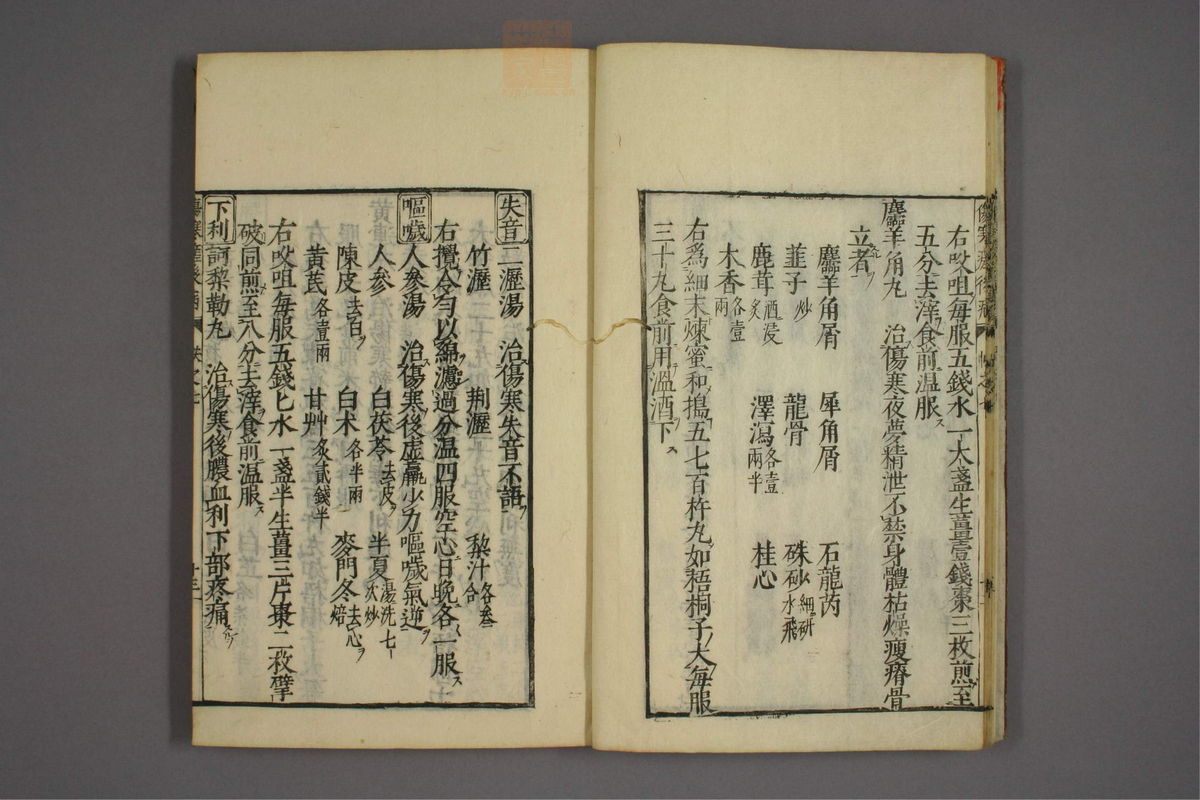 右㕮咀每服五錢水一大盞生薑壹錢棗三枚煎至
五分去滓食前温服ス
麢羊角丸　治傷寒夜夢精泄不禁身體枯燥瘦瘠骨
立者
麢羊角屑　犀角屑　石龍芮
韮子炒　龍骨　硃砂細研水飛
鹿茸酒浸炙　澤瀉各壹兩半　桂心
木香各壹兩
右爲細末煉蜜和搗五七百杵丸如梧桐子大每服
三十丸食前用溫酒下ス
失音二瀝湯　治傷寒失音不語
竹瀝　荆瀝　梨汁各叁合
右攪令勻以綿濾過分温四服空心日晚各一服ス
嘔噦人參湯　治傷寒後虛羸少力嘔噦氣逆
人參　白茯苓去皮　半夏湯洗七次炒
陳皮去白　白朮各半兩　麥門冬去心焙
黃芪各壹兩　甘艸炙貳錢半
右㕮咀每服五錢匕水一盞半生薑三片棗二枚擘
破同煎至八分去滓食前温服ス
下利訶黎勒丸　治傷寒後膿血利下部疼痛